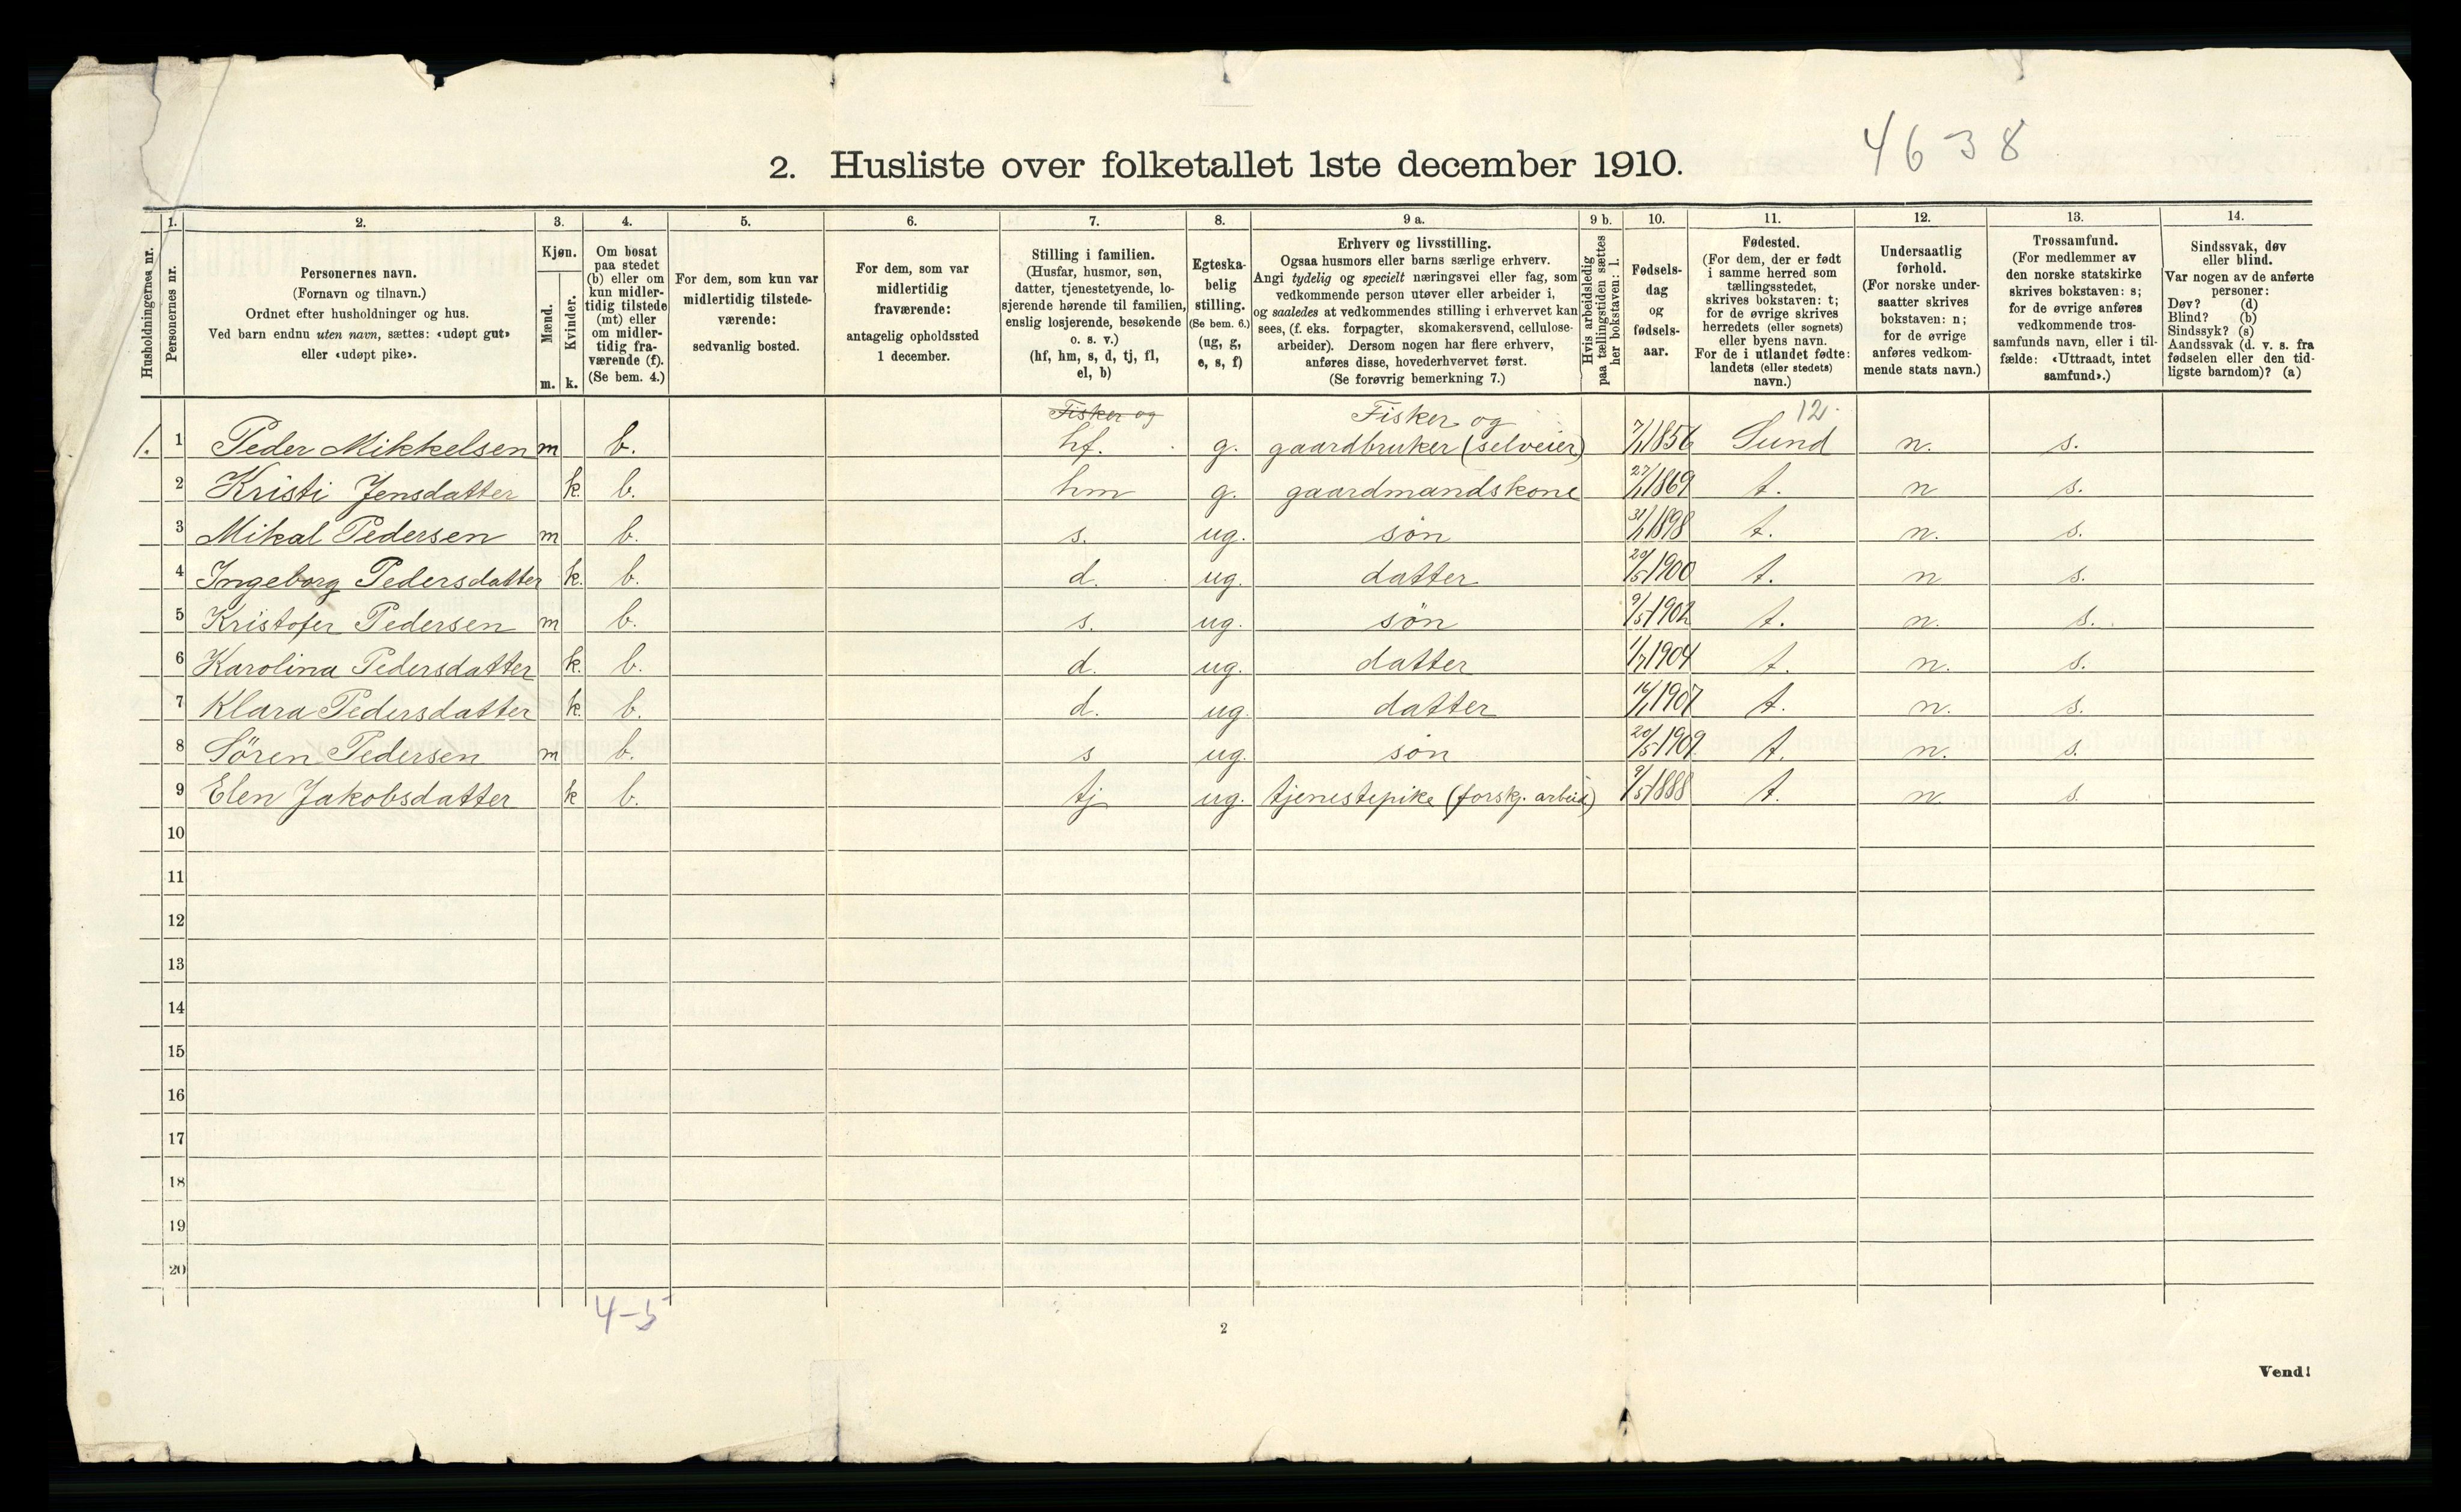 4638
2. Husliste over folketallet 1ste december 1910.
Husholdningernes nr.
1.
Personernes nr.
2.
Personernes navn.
(Fornavn og tilnavn.)
Ordnet efter husholdninger og hus.
Ved barn endnu uten navn, sættes: «udøpt gut»
eller «udøpt pike».
3.
Kjøn.
Mænd.
m.
Kvinder.
k.
4.
Om bosat
paa stedet
(b) eller om
kun midler-
tidig tilstede
(mt) eller
om midler-
tidig fra-
værende (f).
(Se bem. 4.)
5.
For dem, som kun var
midlertidig tilstede-
værende:
sedvanlig bosted.
6.
For dem, som var
midlertidig
fraværende:
antagelig opholdssted
1 december.
7.
Stilling i familien.
(Husfar, husmor, søn,
datter, tjenestetyende, lo-
sjerende hørende til familien,
enslig losjerende, besøkende
o. s. v.)
(hf, hm, s, d, tj, fl,
el, b)
8.
Egteska-
belig
stilling.
(Se bem. 6.)
(ug, g,
e, s, f)
9 a.
Erhverv og livsstilling.
Ogsaa husmors eller barns særlige erhverv.
Angi tydelig og specielt næringsvei eller fag, som
vedkommende person utøver eller arbeider i,
og saaledes at vedkommendes stilling i erhvervet kan
sees, (f. eks. forpagter, skomakersvend, cellulose-
arbeider). Dersom nogen har flere erhverv,
anføres disse, hovederhvervet først.
(Se forøvrig bemerkning 7.)
9 b.
Hvis arbeidsledig
paa tællingstiden sættes
her bokstaven: l.
10.
Fødsels-
dag
og
fødsels-
aar.
11.
Fødested.
(For dem, der er født
i samme herred som
tællingsstedet,
skrives bokstaven: t;
for de øvrige skrives
herredets (eller sognets)
eller byens navn.
For de i utlandet fødte:
landets (eller stedets)
navn.)
12.
Undersaatlig
forhold.
(For norske under-
saatter skrives
bokstaven: n;
for de øvrige
anføres vedkom-
mende stats navn.)
13.
Trossamfund.
(For medlemmer av
den norske statskirke
skrives bokstaven: s;
for de øvrige anføres
vedkommende tros-
samfunds navn, eller i til-
fælde: «Uttraadt, intet
samfund».)
14.
Sindssvak, døv
eller blind.
Var nogen av de anførte
personer:
Døv? (d)
Blind? (b)
Sindssyk? (s)
Aandssvak (d. v. s. fra
fødselen eller den tid-
ligste barndom)? (a)
Fisker og Fisker og 12.
1. 1 Peder Mikkelsen m b. hf. g. gaardbruker (selveier) 7/1 1856 Sund n. s.
2 Kristi Jensdatter k. b. hm g. gaardmandskone 27/1 1869 t. n s.
3 Mikal Pedersen m b. s. ug. søn 31/1 1898 t. n. s.
4 Ingeborg Pedersdatter k. b. d. ug. datter 20/5 1900 t. n s.
5 Kristofer Pedersen m b. s. ug. søn 9/5 1902 t. n. s.
6 Karolina Pedersdatter k. b. d. ug. datter 1/7 1904 t. n. s.
7 Klara Pedersdatter k. b. d. ug. datter 16/1 1907 t. n. s.
8 Sören Pedersen m b. s ug. søn 20/5 1909. t. n. s.
9 Elen Jakobsdatter k b. tj ug. tjenestepike (forskj. arbeid) 9/5 1888 t. n. s.
10
11
12
13
14
15
16
17
18
19
20
4-5
2
Vend!